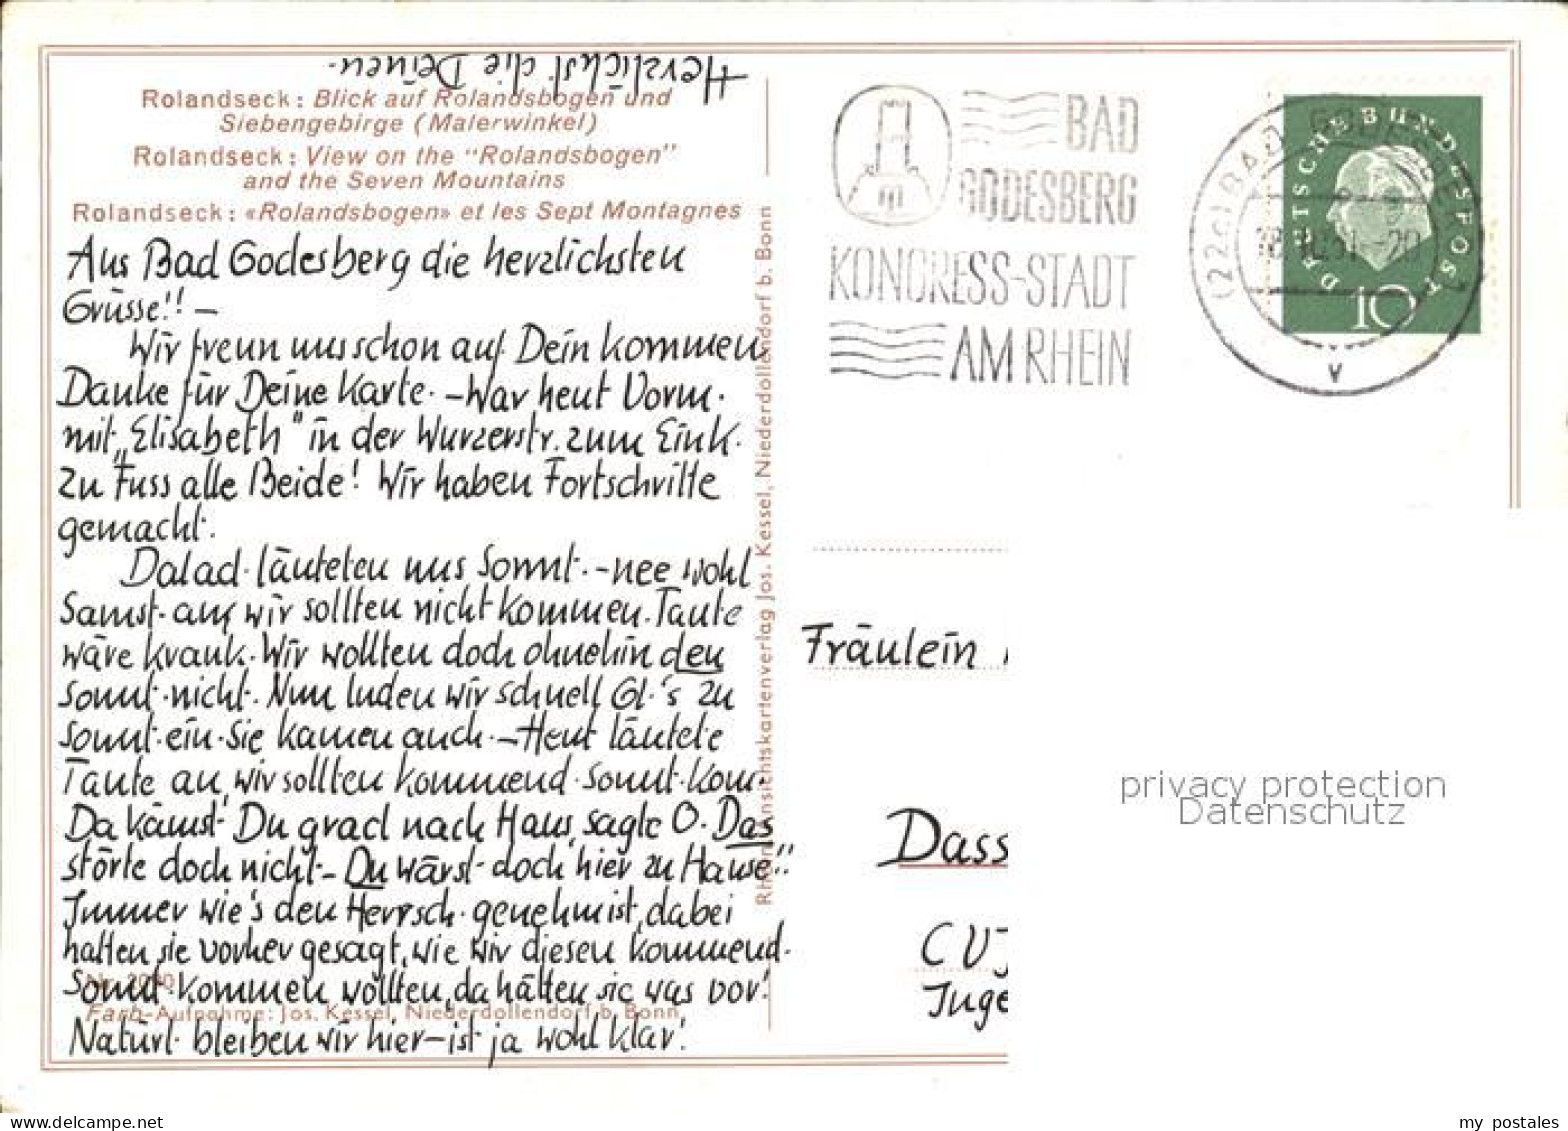 Herzlichst die Deinen.
Rolandseck: Blick auf Rolandsbogen und
Siebengebirge (Malerwinkel)
Rolandseck: View on the "Rolandsbogen"
and the Seven Mountains
Rolandseck: «Rolandsbogen» et les Sept Montagnes
Aus Bad Godesberg die herzlichsten
Grüsse!! —
Wir freun uns schon auf Dein kommen
Danke für Deine Karte. – War heut Vorm.
mit „Elisabeth" in der Wurzerstr. zum Eink.
zu Fuss alle Beide! Wir haben Fortschritte
gemacht.
läuteten uns Sonnt. – nee wohl
Samst. an, wir sollten nicht kommen. Tante
wäre krank. Wir wollten doch ohnehin den
Sonnt. nicht. Nun luden wir schnell Gl.'s zu
Sonnt. ein. Sie kamen auch. – Heut läutete
Tante an, wir sollten kommend. Sonnt. kom.
Da kämst Du grad nach Haus, sagte O. Das
störte doch nicht – Du wärst doch hier zu Hause!!
Immer wie's den Herrsch. genehm ist, dabei
hatten sie vorher gesagt, wie wir diesen kommend.
Sonnt. kommen wollten, da hätten sie was vor!
Natürl. bleiben wir hier – ist ja wohl klar!
Farb-Aufnahme: Jos. Kessel, Niederdollendorf b. Bonn
Rhein. Ansichtskartenverlag Jos. Kessel, Niederdollendorf b. Bonn
BAD
GODESBERG
KONGRESS-STADT
AM RHEIN
(22c) BAD GODESBERG
v
DEUTSCHE BUNDESPOST
10
Fräulein
Dass
CVJ
Juge
privacy protection
Datenschutz
my postales